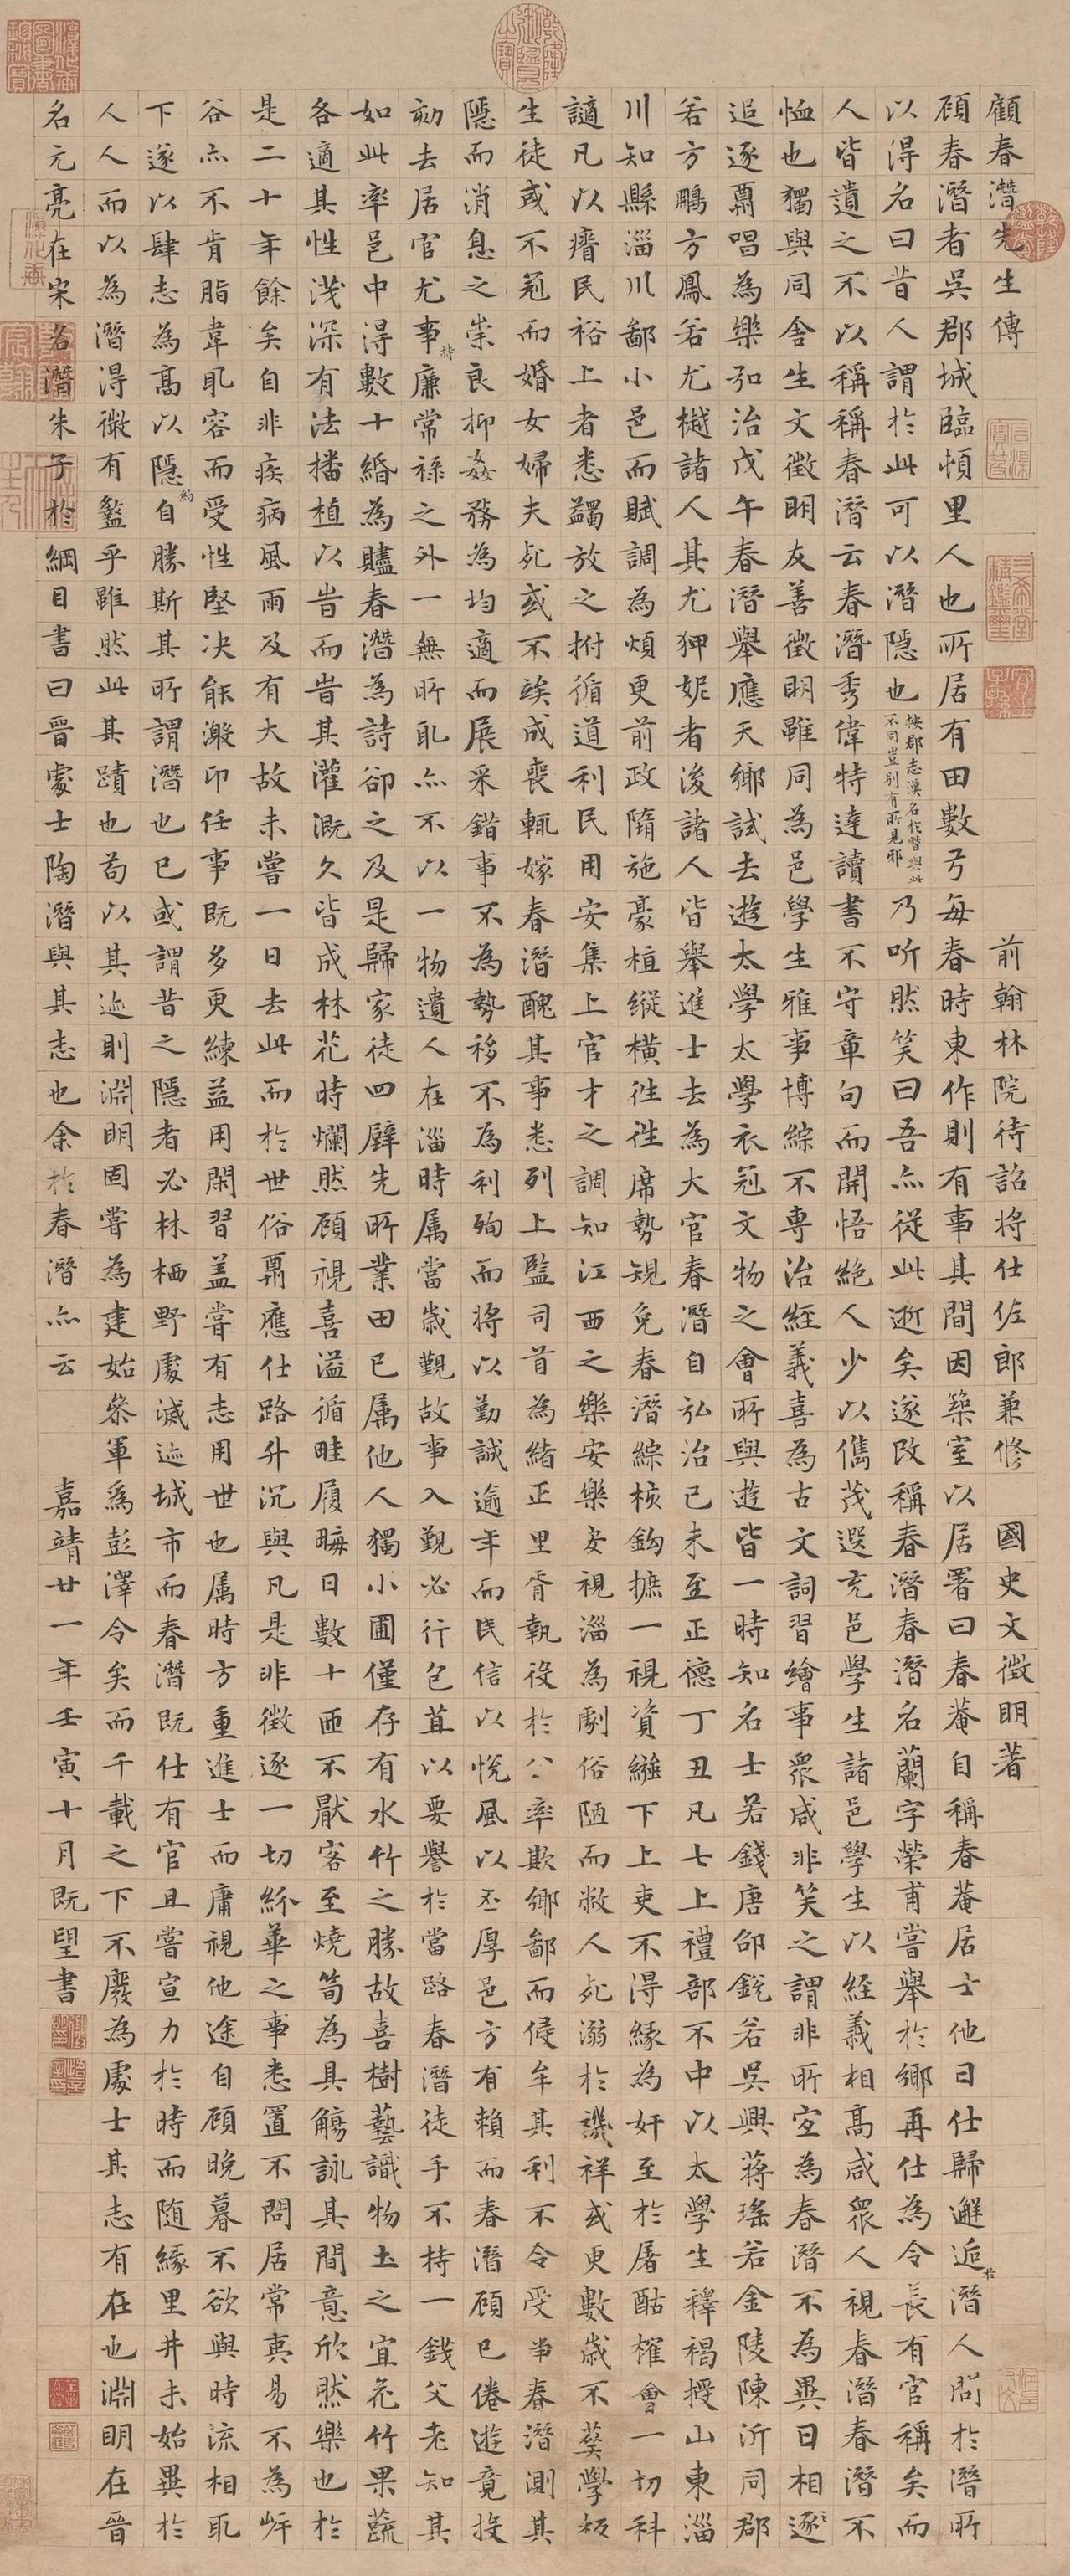 顧春潛先生傳　前翰林院待詔將仕佐郎兼修　國史文徵明著
顧春潛者吳郡城臨頓里人也所居有田數弓每春時東作則有事其間因築室以居署曰春菴自稱春菴居士他日仕歸邂逅於潛人問於潛所
以得名曰昔人謂於此可以潛隱也按郡志漢名於朁與此不同豈別有所見邪乃听然笑曰吾亦從此逝矣遂改稱春潛春潛名蘭字榮甫嘗舉於鄉再仕為令長有官稱矣而
人皆遺之不以稱稱春潛云春潛秀偉特達讀書不守章句而開悟絕人少以儁茂選充邑學生諸邑學生以經義相高咸眾人視春潛春潛不
恤也獨與同舍生文徵明友善徵明雖同為邑學生雅事博綜不專治經義喜為古文詞習繪事眾咸非笑之謂非所宜為春潛不為異日相逐
追逐賡唱為樂弘治戊午春潛舉應天鄉試去遊太學太學衣冠文物之會所與遊皆一時知名士若錢唐邵銳若吳興蔣瑤若金陵陳沂同郡
若方鵬方鳳若尤樾諸人其尤狎妮者後諸人皆舉進士去為大官春潛自弘治己未至正德丁丑凡七上禮部不中以太學生釋褐授山東淄
川知縣淄川鄙小邑而賦調為煩更前政隋施豪植縱橫徃徃席勢規免春潛綜核鈎摭一視資緇下上吏不得緣為奸至於屠酤榷會一切科
謫凡以瘠民裕上者悉蠲放之拊循道利民用安集上官才之調知江西之樂安樂安視淄為劇俗陋而敝人死溺於禨祥或更數歲不葬學校
生徒或不冠而婚女婦夫死或不竢成喪輒嫁春潛醜其事悉列上監司首為緒正里胥執役於公率欺鄉鄙而侵牟其利不令受事春潛測其
隱而消息之崇良抑姦務為均適而展采錯事不為勢移不為利殉而將以勤誠逾年而民信以悅風以丕厚邑方有賴而春潛顧已倦遊竟投
劾去居官尤事持廉常祿之外一無所取亦不以一物遺人在淄時屬當歲覲故事入覲必行苞苴以要譽於當路春潛徒手不持一錢父老知其
如此率邑中得數十緡為贐春潛為詩卻之及是歸家徒四壁先所業田已屬他人獨小圃僅存有水竹之勝故喜樹藝識物土之宜花竹果蔬
各適其性淺深有法播植以旹而旹其灌溉久皆成林花時爛然顧視喜溢循畦履畮日數十匝不厭客至燒筍為具觴詠其間意欣然樂也於
是二十年餘矣自非疾病風雨及有大故未嘗一日去此而於世俗賡應仕路升沉與凡是非徵逐一切紛華之事悉置不問居常夷易不為岍
谷亦不肯脂韋取容而受性堅决能激卬任事既多更練益用閑習蓋嘗有志用世也属時方重進士而庸視他途自顧晚暮不欲與時流相取
下遂以肆志為高以隱約自勝斯其所謂潛也已或謂昔之隱者必林栖野處滅迹城市而春潛既仕有官且嘗宣力於時而随緣里井未始異於
人人而以為潛得微有盭乎雖然此其蹟也苟以其迹則淵明固嘗為建始參軍為彭澤令矣而千載之下不廢為處士其志有在也淵明在晉
名元亮在宋名潛朱子於綱目書曰晉處士陶潛與其志也余於春潛亦云　嘉靖廿一年壬寅十月既望書